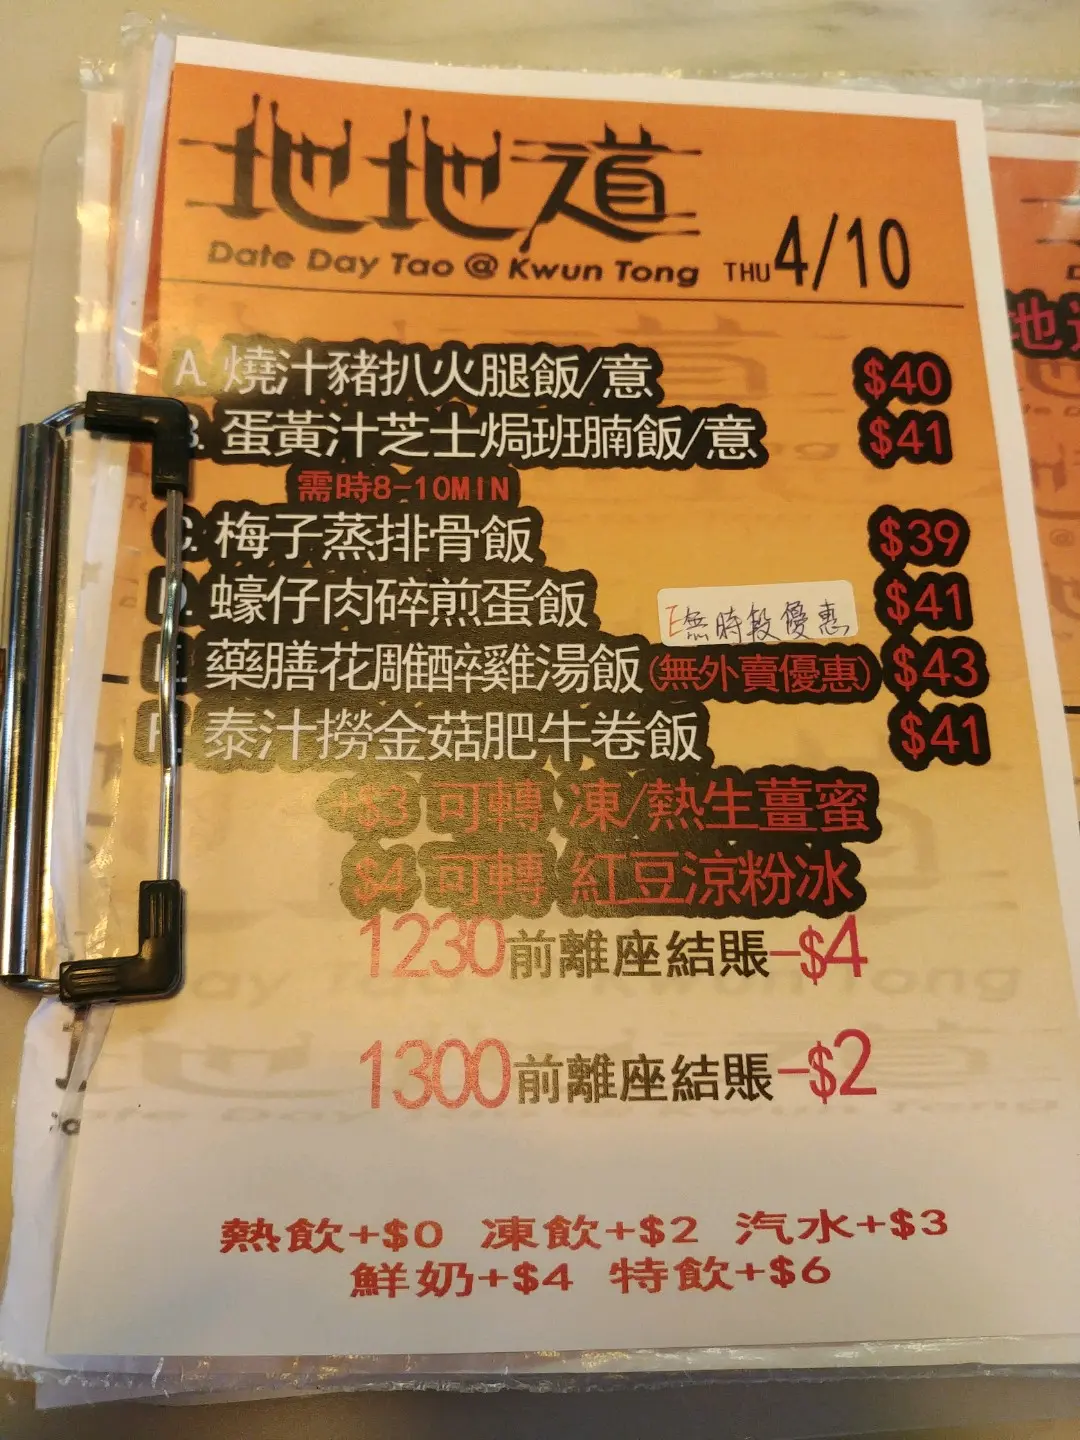 地地道
Date Day Tao @ Kwun Tong THU 4/10
A. 燒汁豬扒火腿飯/意 $40
B. 蛋黃汁芝士焗班腩飯/意 $41
需時8-10MIN
C. 梅子蒸排骨飯 $39
D. 蠔仔肉碎煎蛋飯 $41
E無時段優惠
E. 藥膳花雕醉雞湯飯(無外賣優惠) $43
F. 泰汁撈金菇肥牛卷飯 $41
+$3 可轉 凍/熱生薑蜜
$4 可轉 紅豆涼粉冰
1230前離座結賬-$4
1300前離座結賬-$2
熱飲+$0 凍飲+$2 汽水+$3
鮮奶+$4 特飲+$6